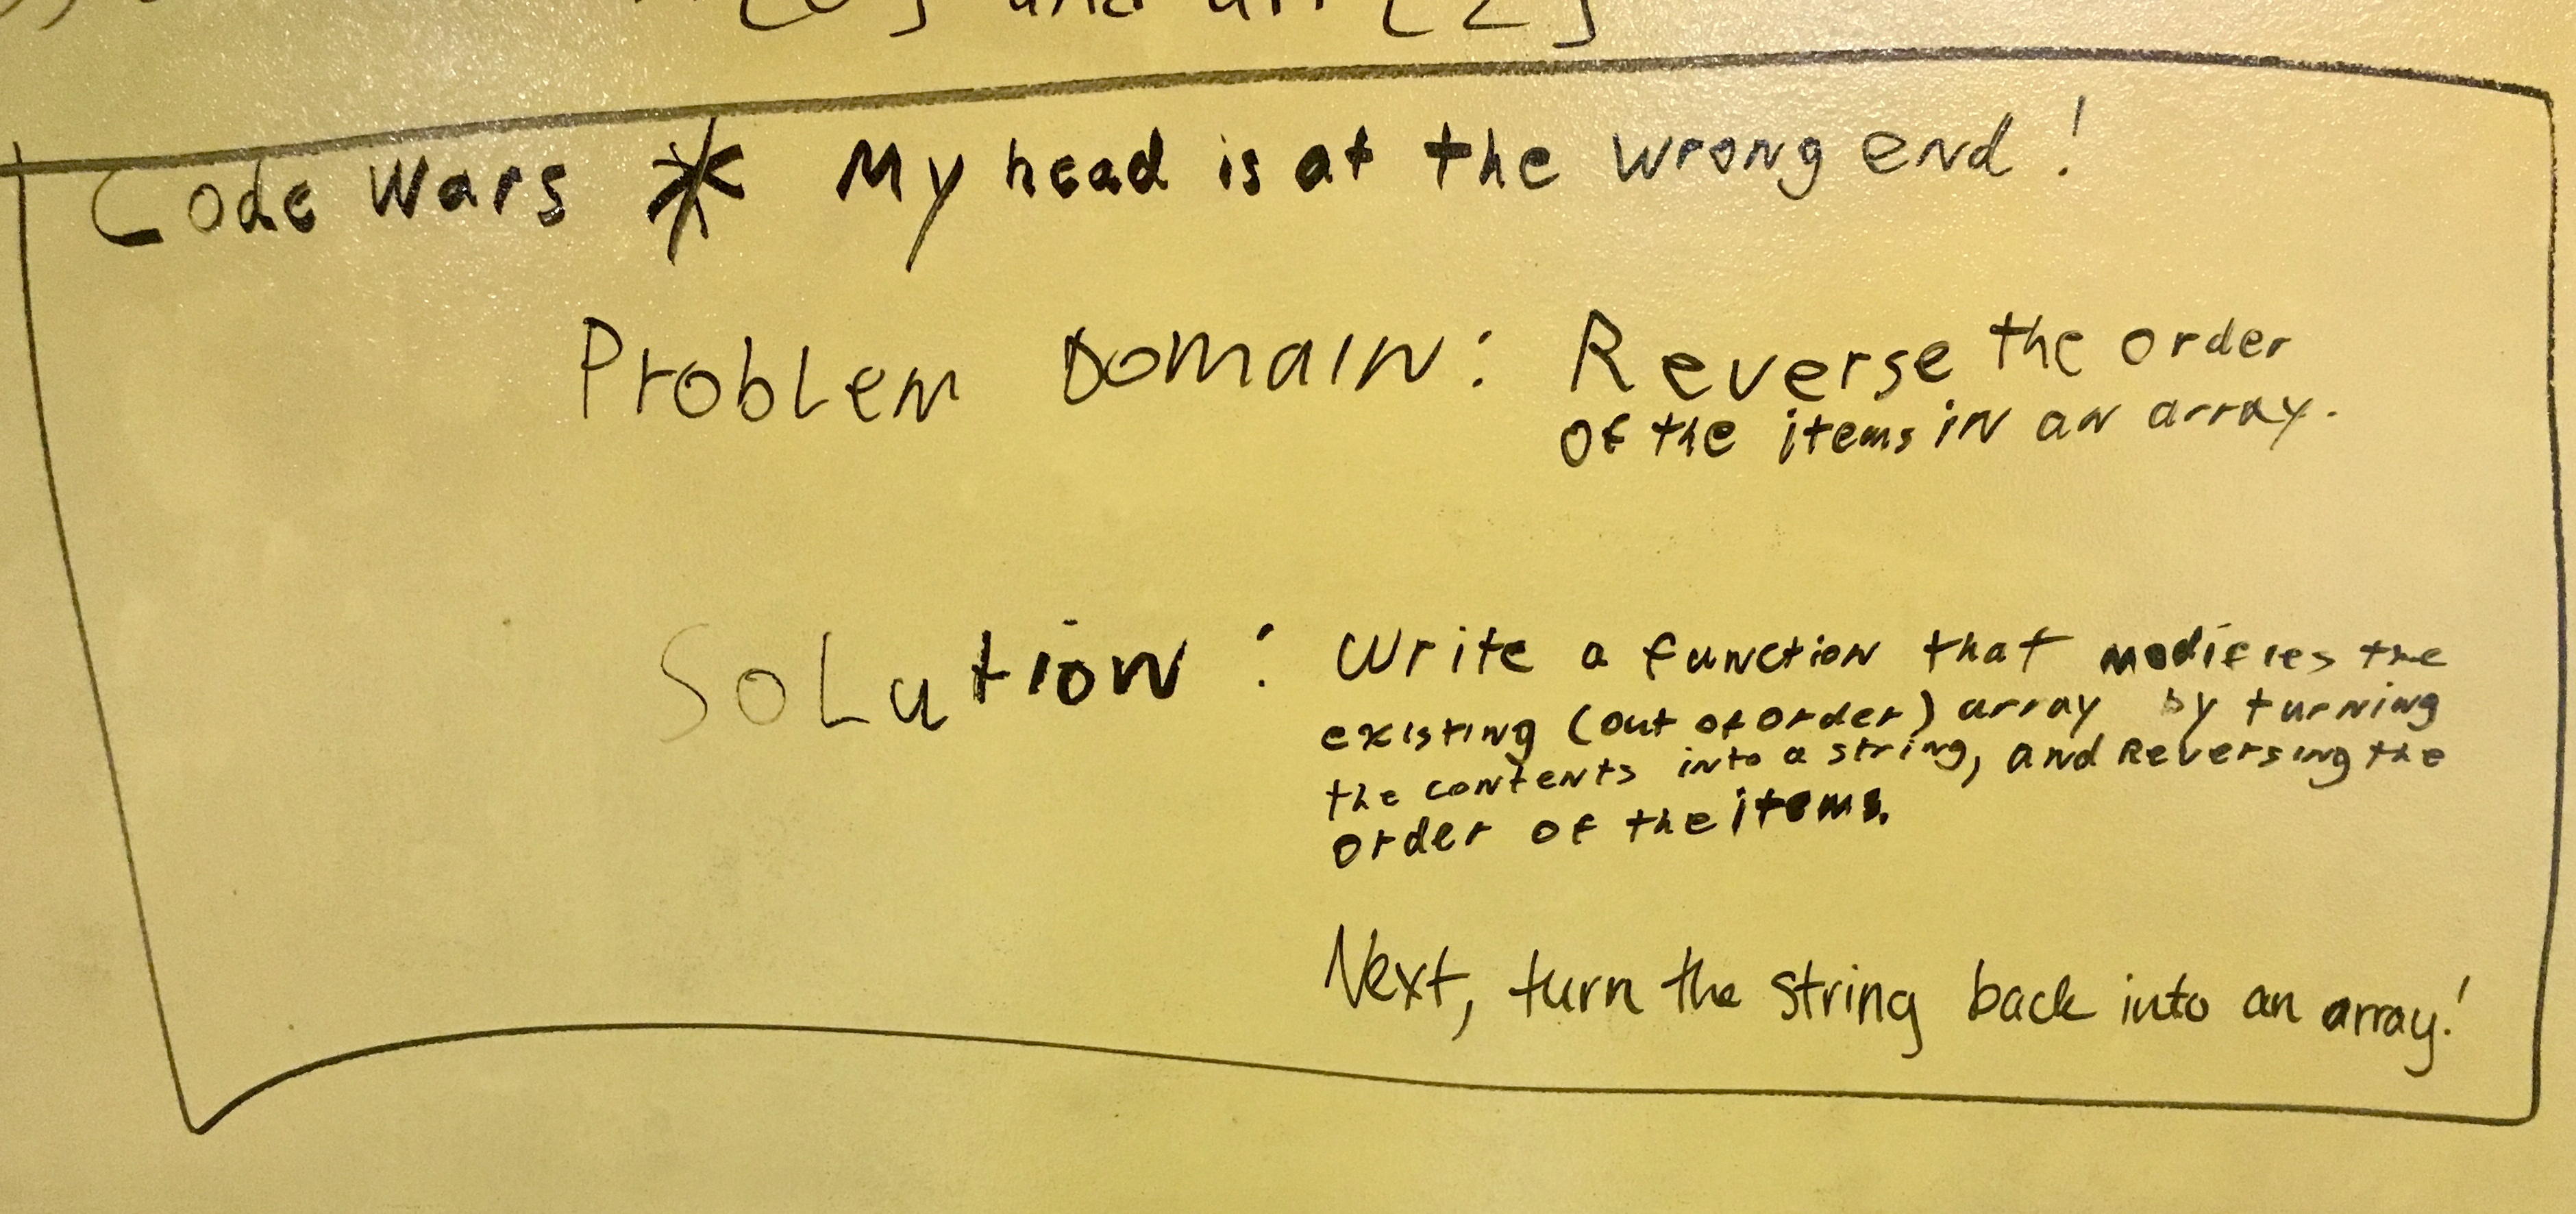 [0] and arr[2]
Code Wars * My head is at the wrong end!
Problem Domain: Reverse the order
of the items in an array.
Solution: Write a function that modifies the
existing (out of order) array by turning
the contents into a string, and Reversing the
order of the items.
Next, turn the string back into an array!